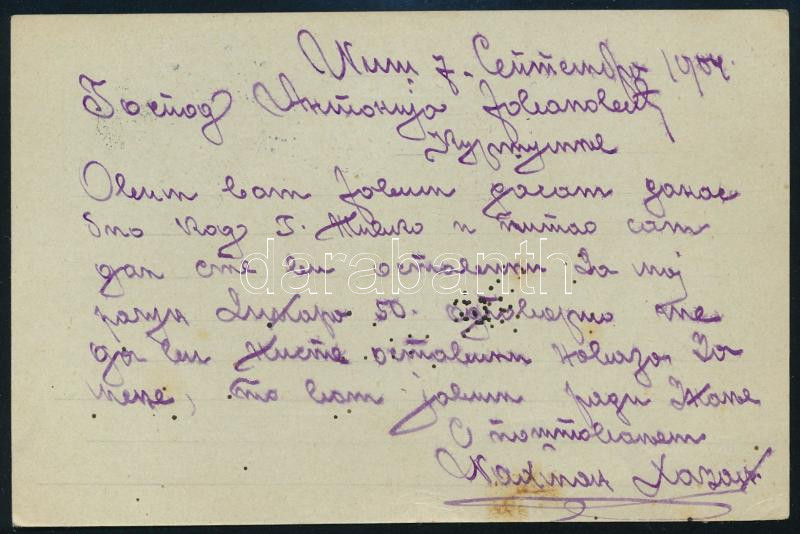 Ниш 7. Септембр 1904.
Господ Антонија Јовановећ
Куртумпе
Овим вам јавим да сам данас
био код Г. Живко и питао сам
дал сте ви оставили за мој
рачун Динара 50. одговорио ме
да ви нисте оставили новаца за
мене, то вам јавим ради знане
С поштовањем
darabanth